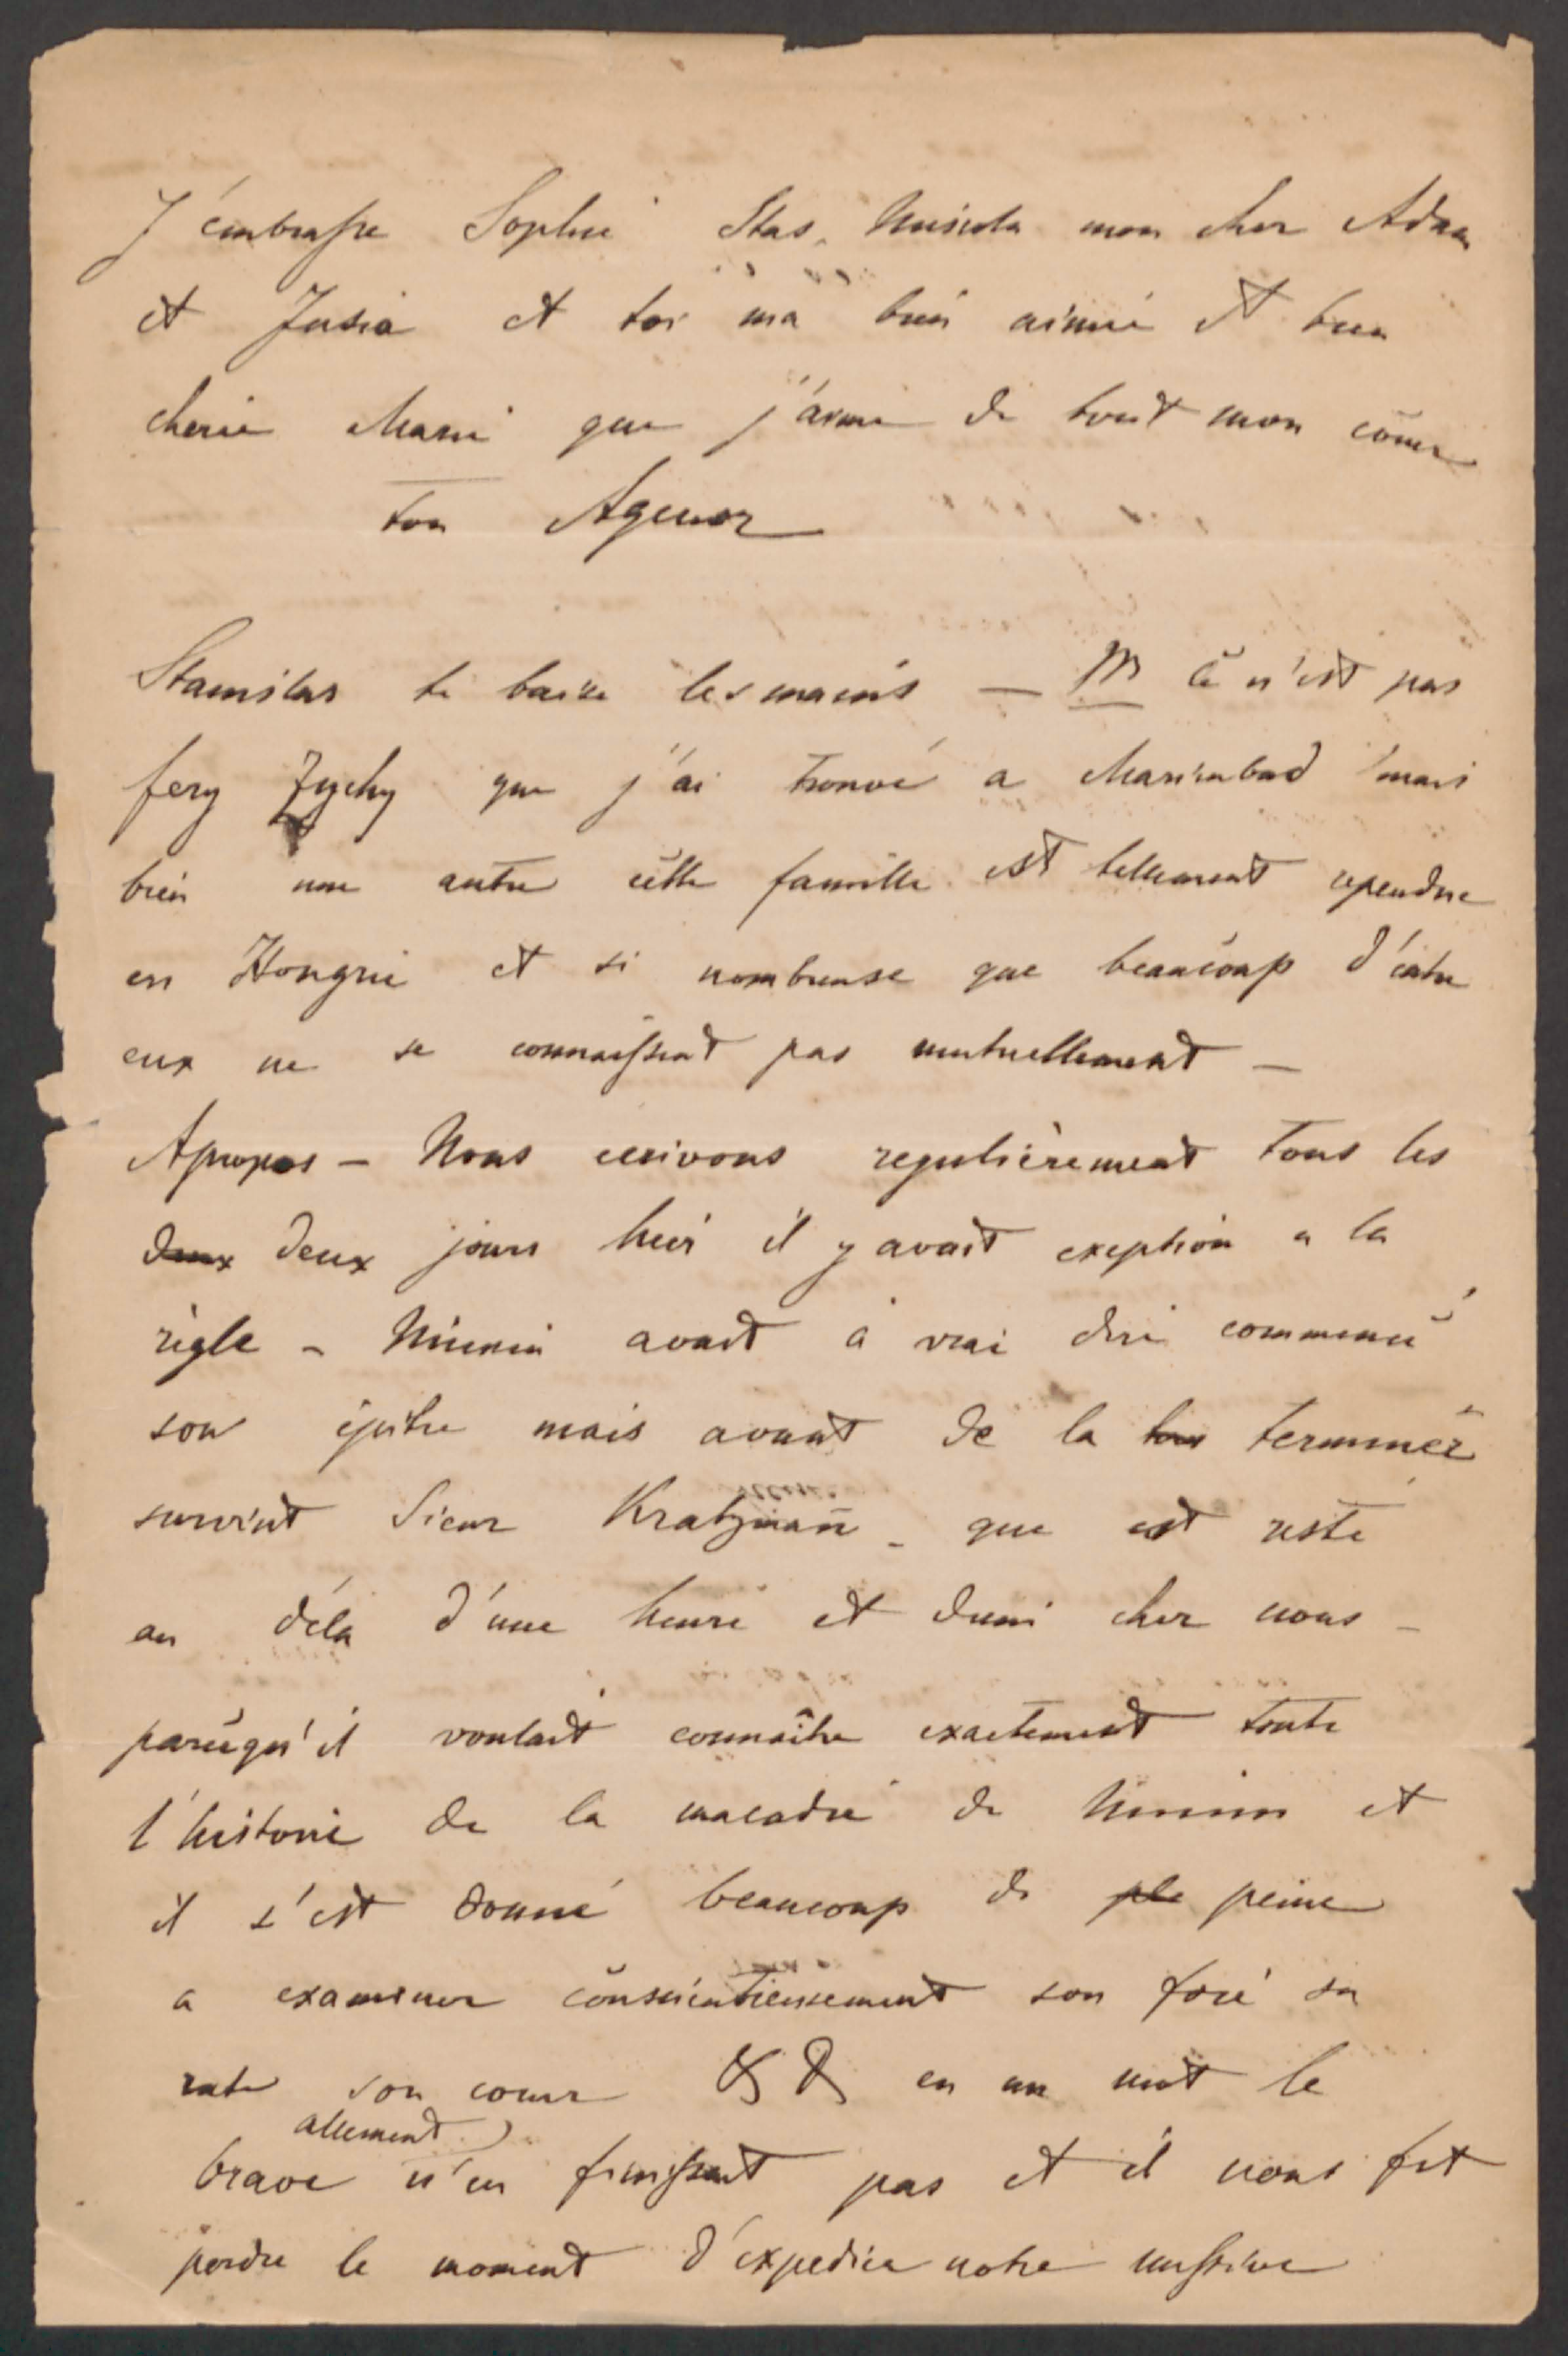 J'embrasse Sophie Stas, mon cher Adam
et Jusia et toi ma bien aimée et bien
cherie Marie que j'aime de tout mon cœur
ton Agenor
Stanislas te baise les mains — M Ce n'est pas
fery Zychy que j'ai trouvé a Marienbad mais
bien une autre cette famille est tellement rependue
en Hongrie et si nombreuse que beaucoup d'entre
eux ne se connaissent pas mutuellement —
Apropos — Nous ecrivons regulièrement tous les
deux deux jours hier il y avait exeption a la
règle – Mimin avait à vrai dire commencé
son épitre mais avant de la terminer
survint Sieur Kratzmann – que est resté
au déla d'une heure et demi chez nous –
parcequ'il voulait connaître exactement toute
l'histoire de la maladie de Mimin et
il s'est donné beaucoup de ple peine
a examiner consciencieusement son foie sa
rate son cœur & & en un mot le
allement
brave n'en finissait pas et il nous fit
perdre le moment d'expedier notre missive